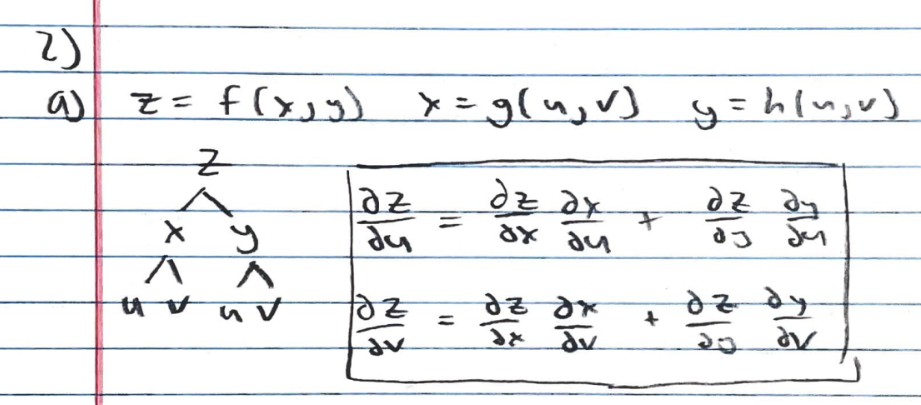 2)
a) z = f(x,y) x = g(u,v) y = h(u,v)
z
x y
u v u v
∂z/∂u = ∂z/∂x ∂x/∂u + ∂z/∂y ∂y/∂u
∂z/∂v = ∂z/∂x ∂x/∂v + ∂z/∂y ∂y/∂v